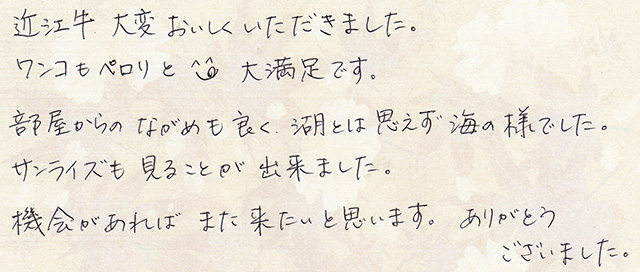 近江牛 大変おいしくいただきました。
ワンコもペロリと 大満足です。
部屋からのながめも良く、湖とは思えず海の様でした。
サンライズも見ることが出来ました。
機会があればまた来たいと思います。ありがとう
ございました。